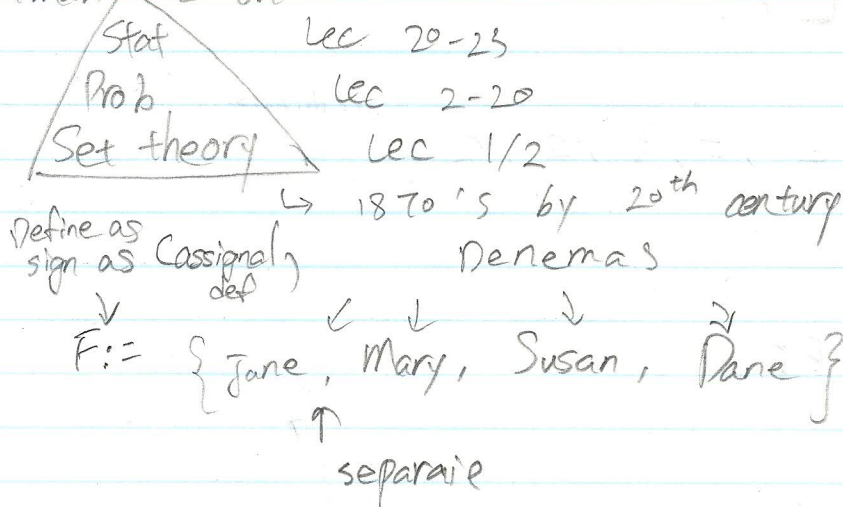 Stat Lec 20-23
Prob Lec 2-20
Set theory Lec 1/2
↳ 1870's by 20th century
Define as
sign as Cassignal,
def
Denemas
F:= { Jane, Mary, Susan, Dane }
separaie